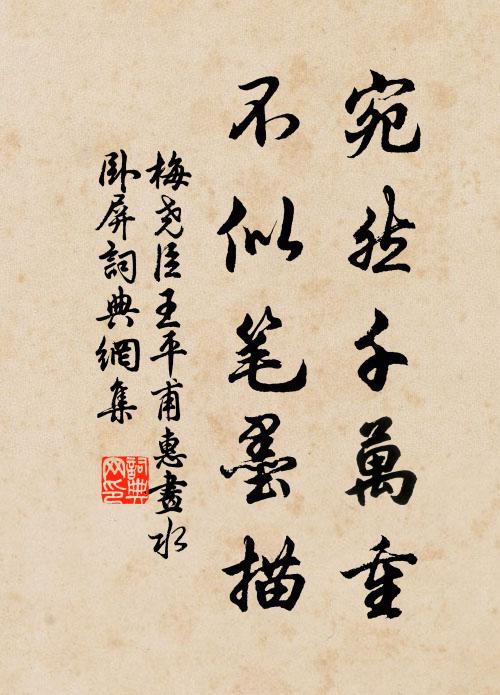 宛然千萬重
不似笔墨描
梅堯臣王平甫惠畫水
卧屏詞典網集
詞典网印